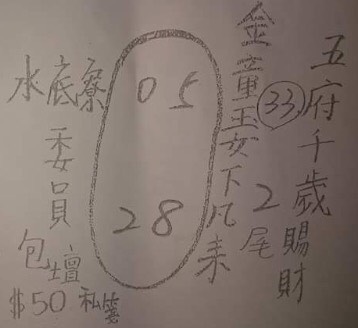 五府千歲賜財
33
2尾
金童玉女下凡来
05
28
水底寮
委員
包壇
$50 私簽